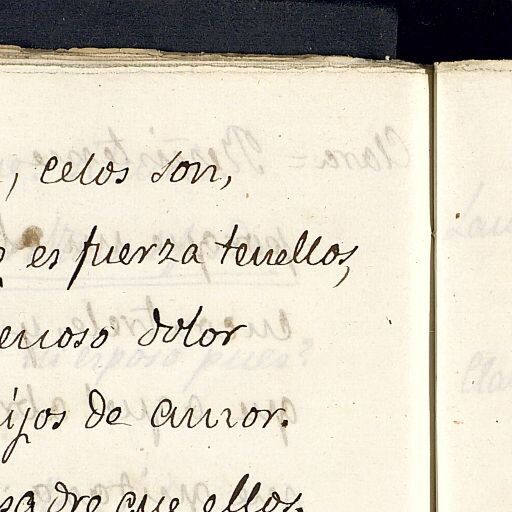 , celos son,
es fuerza tenellos,
enoso dolor
ijos de amor.
padre que ellos.